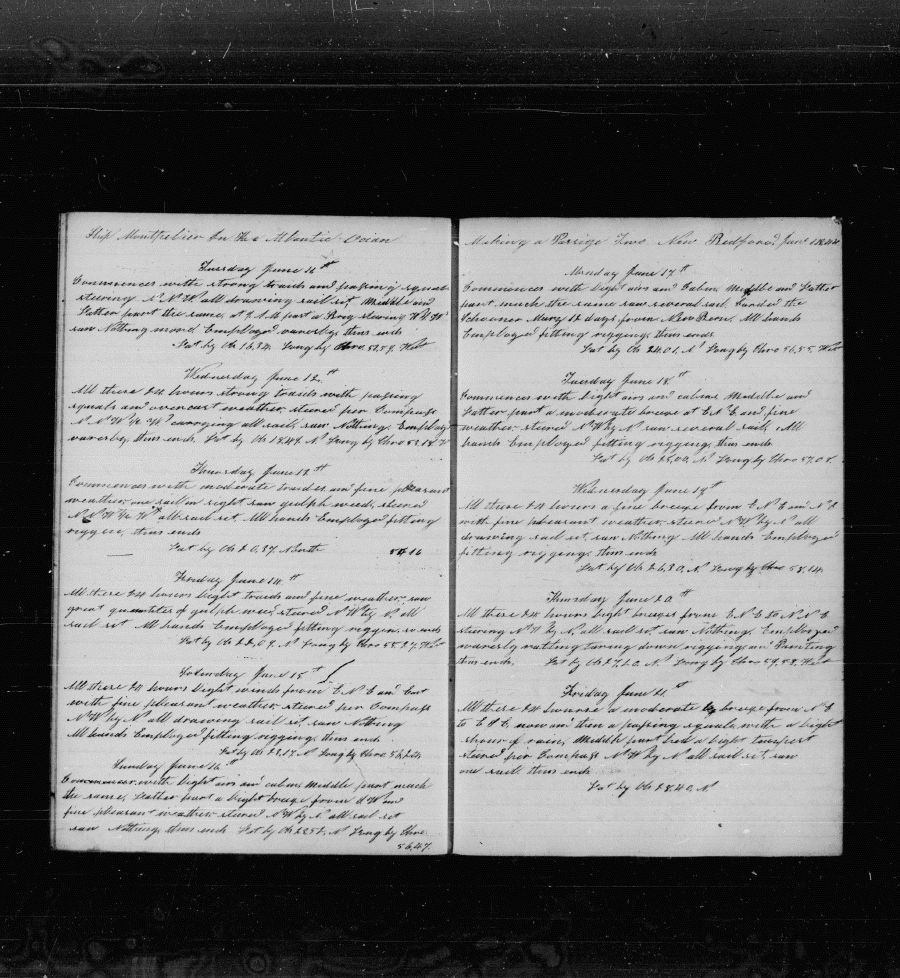 Ship Montpelier In the Atlantic Ocian
Tuesday June 11th
Commences with strong traids and passing squals
stearing N N W all drawing sail set, Middle and
Latter part the same, at 7 A M past a Brig stearing
saw Nothing more, Employed vareusly, thus ends
Lat by Ob 16,34. Long by Chro 51,59. West
Wednesday June 12th
All these 24 hours strong traids with passing
squals and overcast weather, steared per Compass
N N W 1/2 W carrying all sail, saw Nothing. Employed
vareusly, thus ends, Lat by Ob 18,49 N Long by Chro 52,18 W
Thursday June 13th
Commences with moderate traides and fine pleasant
weather, one sail in sight saw gulph weed, steared
N N W 1/2 W all sail set. All hands Employed fitting
riggin, thus ends
Lat by Ob 20,37 North 54 16
Friday June 14th
All these 24 hours light traids and fine weather, saw
great quantites of gulph weed, steared N W by N all
sail set All hands Employed fitting riggin, so ends
Lat by Ob 22,09, N Long by Chro 55,27, West
Saturday June 15th
All these 24 hours light winds from E N E and East
with fine pleasant weather, steared per Compass
N W by N all drawing sail set, saw Nothing
All hands Employed fitting rigging, thus ends
Lat by Ob 23,17 N Long by Chro 56,24
Sunday June 16th
Commences with light airs and calms, Middle part much
the same, Latter part a light breze from and
fine pleasant weather steared N W by N all sail set
saw Nothing, thus ends Lat by Ob 23,52, N Long by Chro
56,47.
Making a Passige Towards New Bedford, June 1844
Monday June 17th
Commences with light airs and Calms, Middle and Latter
part much the same saw several sail, the
Schooner Mary 12 days from All hands
Employed fitting rigging, thus ends
Lat by Ob 24,01, N Long by Chro 56,55, West
Tuesday June 18th
Commences with light airs and calms Middle and
Latter part a moderate breeze at E N E, and fine
weather, steared N W by N saw several sail, All
hands Employed fitting rigging, thus ends
Lat by Ob 25,00, N Long by Chro 57,05.
Wednesday June 19th
All these 24 hours a fine breeze from E N E and N E
with fine pleasant weather, steared N W by N all
drawing sail set, saw Nothing All hands Employed
fitting rigging, thus ends
Lat by Ob 26,30, N Long by Chro 58,14.
Thursday June 20th
All these 24 hours light breezes from E N E to N N E
stearing N W by N, all sail set, saw Nothing, Employed
vareusly ratling taring down rigging, and Painting
thus ends, Lat by Ob 27,20, N Long by Chro 59,53, West
Friday June 21st
All these 24 hours a moderate breeze from N E
to E S E, now and then a passing squals with a light
shour of rain, Middle part had a light tempest
steared per Compass N W by N, all sail set, saw
one sail thus ends
Lat by Ob 28,40, N